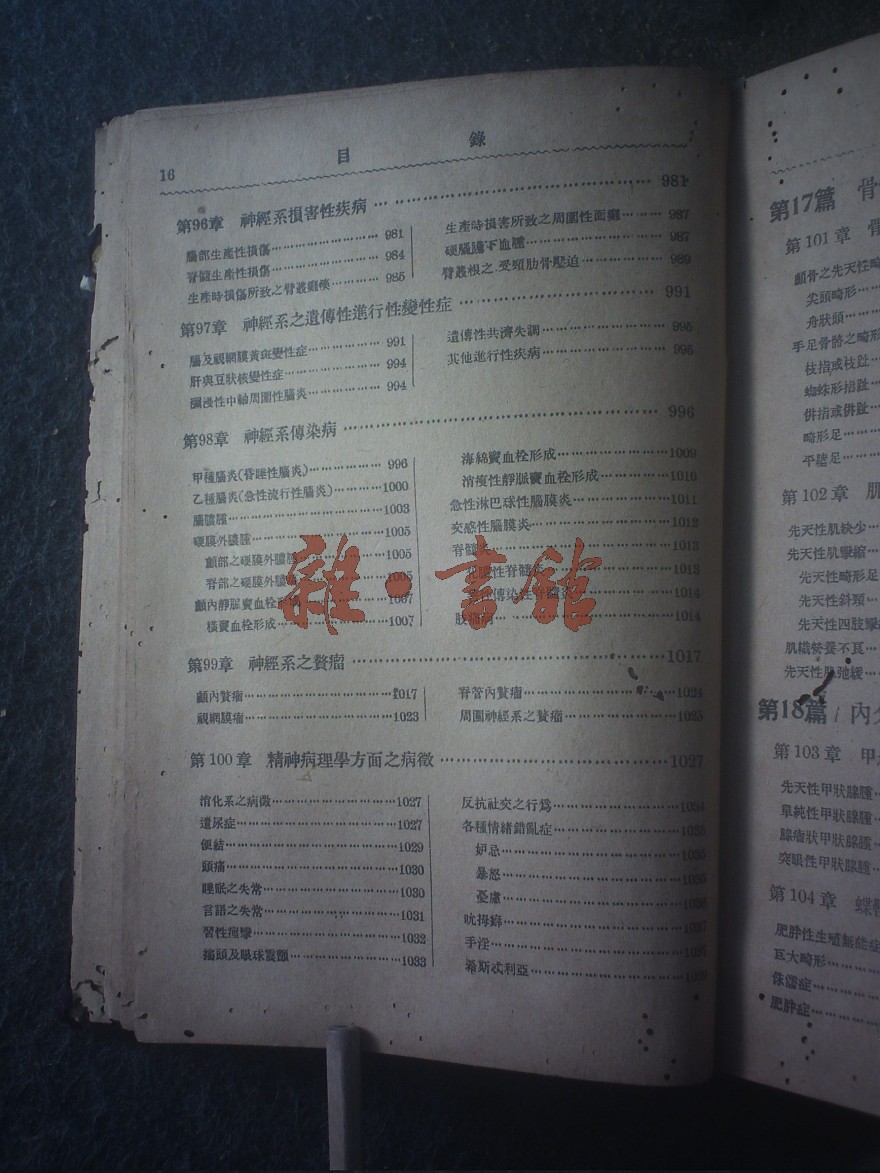 16
目 錄
第96章 神經系損害性疾病 981
腦部生產性損傷 981
脊髓生產性損傷 984
生產時損傷所致之臂叢癱瘓 985
生產時損害所致之周圍性面癱 987
硬腦膜下血腫 987
臂叢根之受頸肋骨壓迫 989
第97章 神經系之遺傳性進行性變性症 991
腦及視網膜黃斑變性症 991
肝與豆狀核變性症 994
瀰浸性中軸周圍性腦炎 994
遺傳性共濟失調 995
其他進行性疾病 995
第98章 神經系傳染病 996
甲種腦炎(昏睡性腦炎) 996
乙種腦炎(急性流行性腦炎) 1000
腦膿腫 1003
硬膜外膿腫 1005
顱部之硬膜外膿腫 1005
脊部之硬膜外膿 1005
顱內靜脈竇血栓形成 1007
橫竇血栓形成 1007
海綿竇血栓形成 1009
消瘦性靜脈竇血栓形成 1010
急性淋巴球性腦膜炎 1011
交感性腦膜炎 1012
脊髓炎 1013
性脊髓炎 1013
傳染性脊髓炎 1014
1014
雜·書館
第99章 神經系之贅瘤 1017
顱內贅瘤 1017
視網膜瘤 1023
脊管內贅瘤 1024
周圍神經系之贅瘤 1025
第100章 精神病理學方面之病徵 1027
消化系之病徵 1027
遺尿症 1027
便結 1029
頭痛 1030
睡眠之失常 1030
言語之失常 1031
習性痙攣 1032
搖頭及眼球震顫 1033
反抗社交之行爲 1034
各種情緒錯亂症 1035
妒忌 1035
暴怒 1035
憂慮 1036
吮拇癖 1037
手淫
希斯忒利亞
第17篇 骨
第101章 骨
顱骨之先天性畸
尖頭畸形
舟狀頭
手足骨骼之畸形
枝指或枝趾
蜘蛛形指趾
併指或併趾
畸形足
平蹠足
第102章 肌
先天性肌缺少
先天性肌攣縮
先天性畸形足
先天性斜頸
先天性四肢攣
肌織營養不良
先天性肌弛緩
第18篇 內分
第103章 甲
先天性甲狀腺腫
單純性甲狀腺腫
腺瘤狀甲狀腺腫
突眼性甲狀腺腫
第104章
肥胖性生殖無能症
巨大畸形
侏儒症
肥胖症